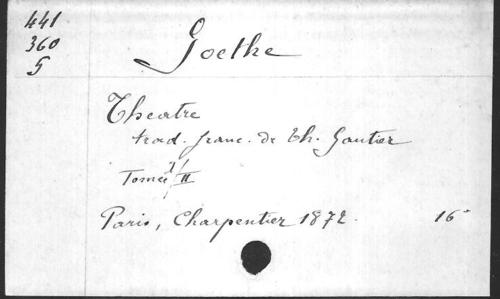 441
360
5
Goethe
Theatre
trad. franc. de Th. Gautier
Tome I/II
Paris, Charpentier 1872. 16°